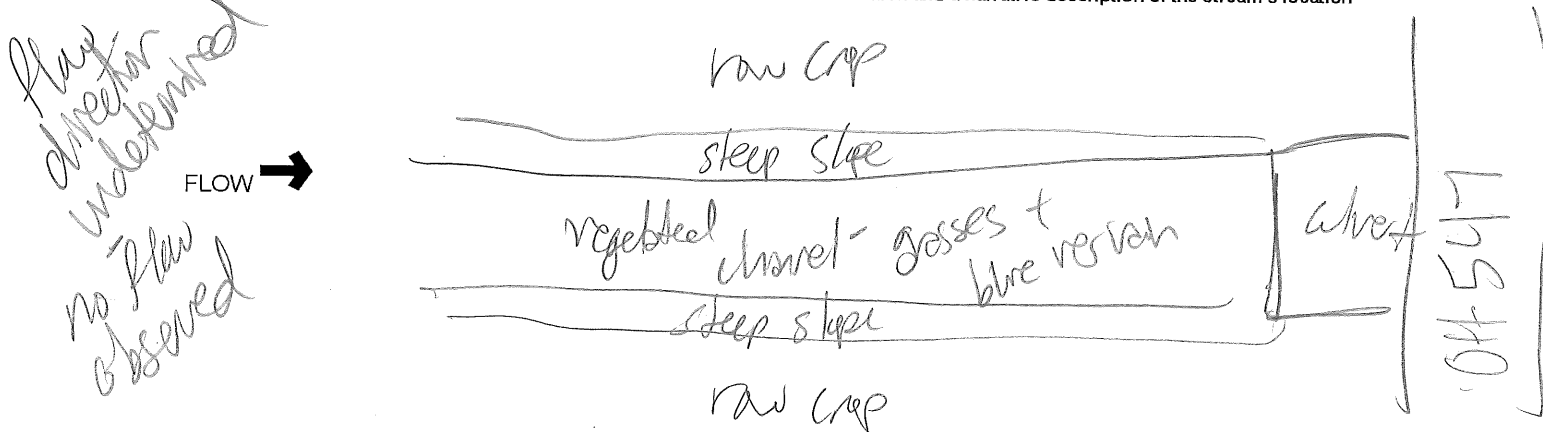 description of the stream's location
flow
direction
undetermined
- no flow
observed
FLOW
row crop
steep slope
vegetated channel - grasses +
blue vervain
culvert
steep slope
row crop
OH 547